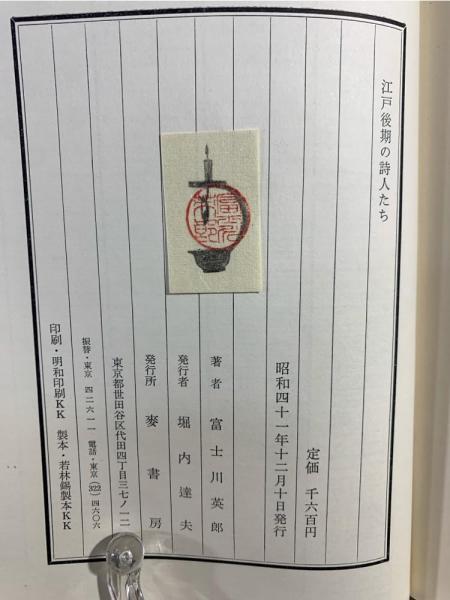 江戸後期の詩人たち
定価 千六百円
昭和四十一年十二月十日発行
著者 富士川英郎
発行者 堀内達夫
発行所 麥書房
東京都世田谷区代田四丁目三七ノ一二
振替・東京 四二六一一 電話・東京(322)四六〇六
印刷・明和印刷KK 製本・若林錫製本KK